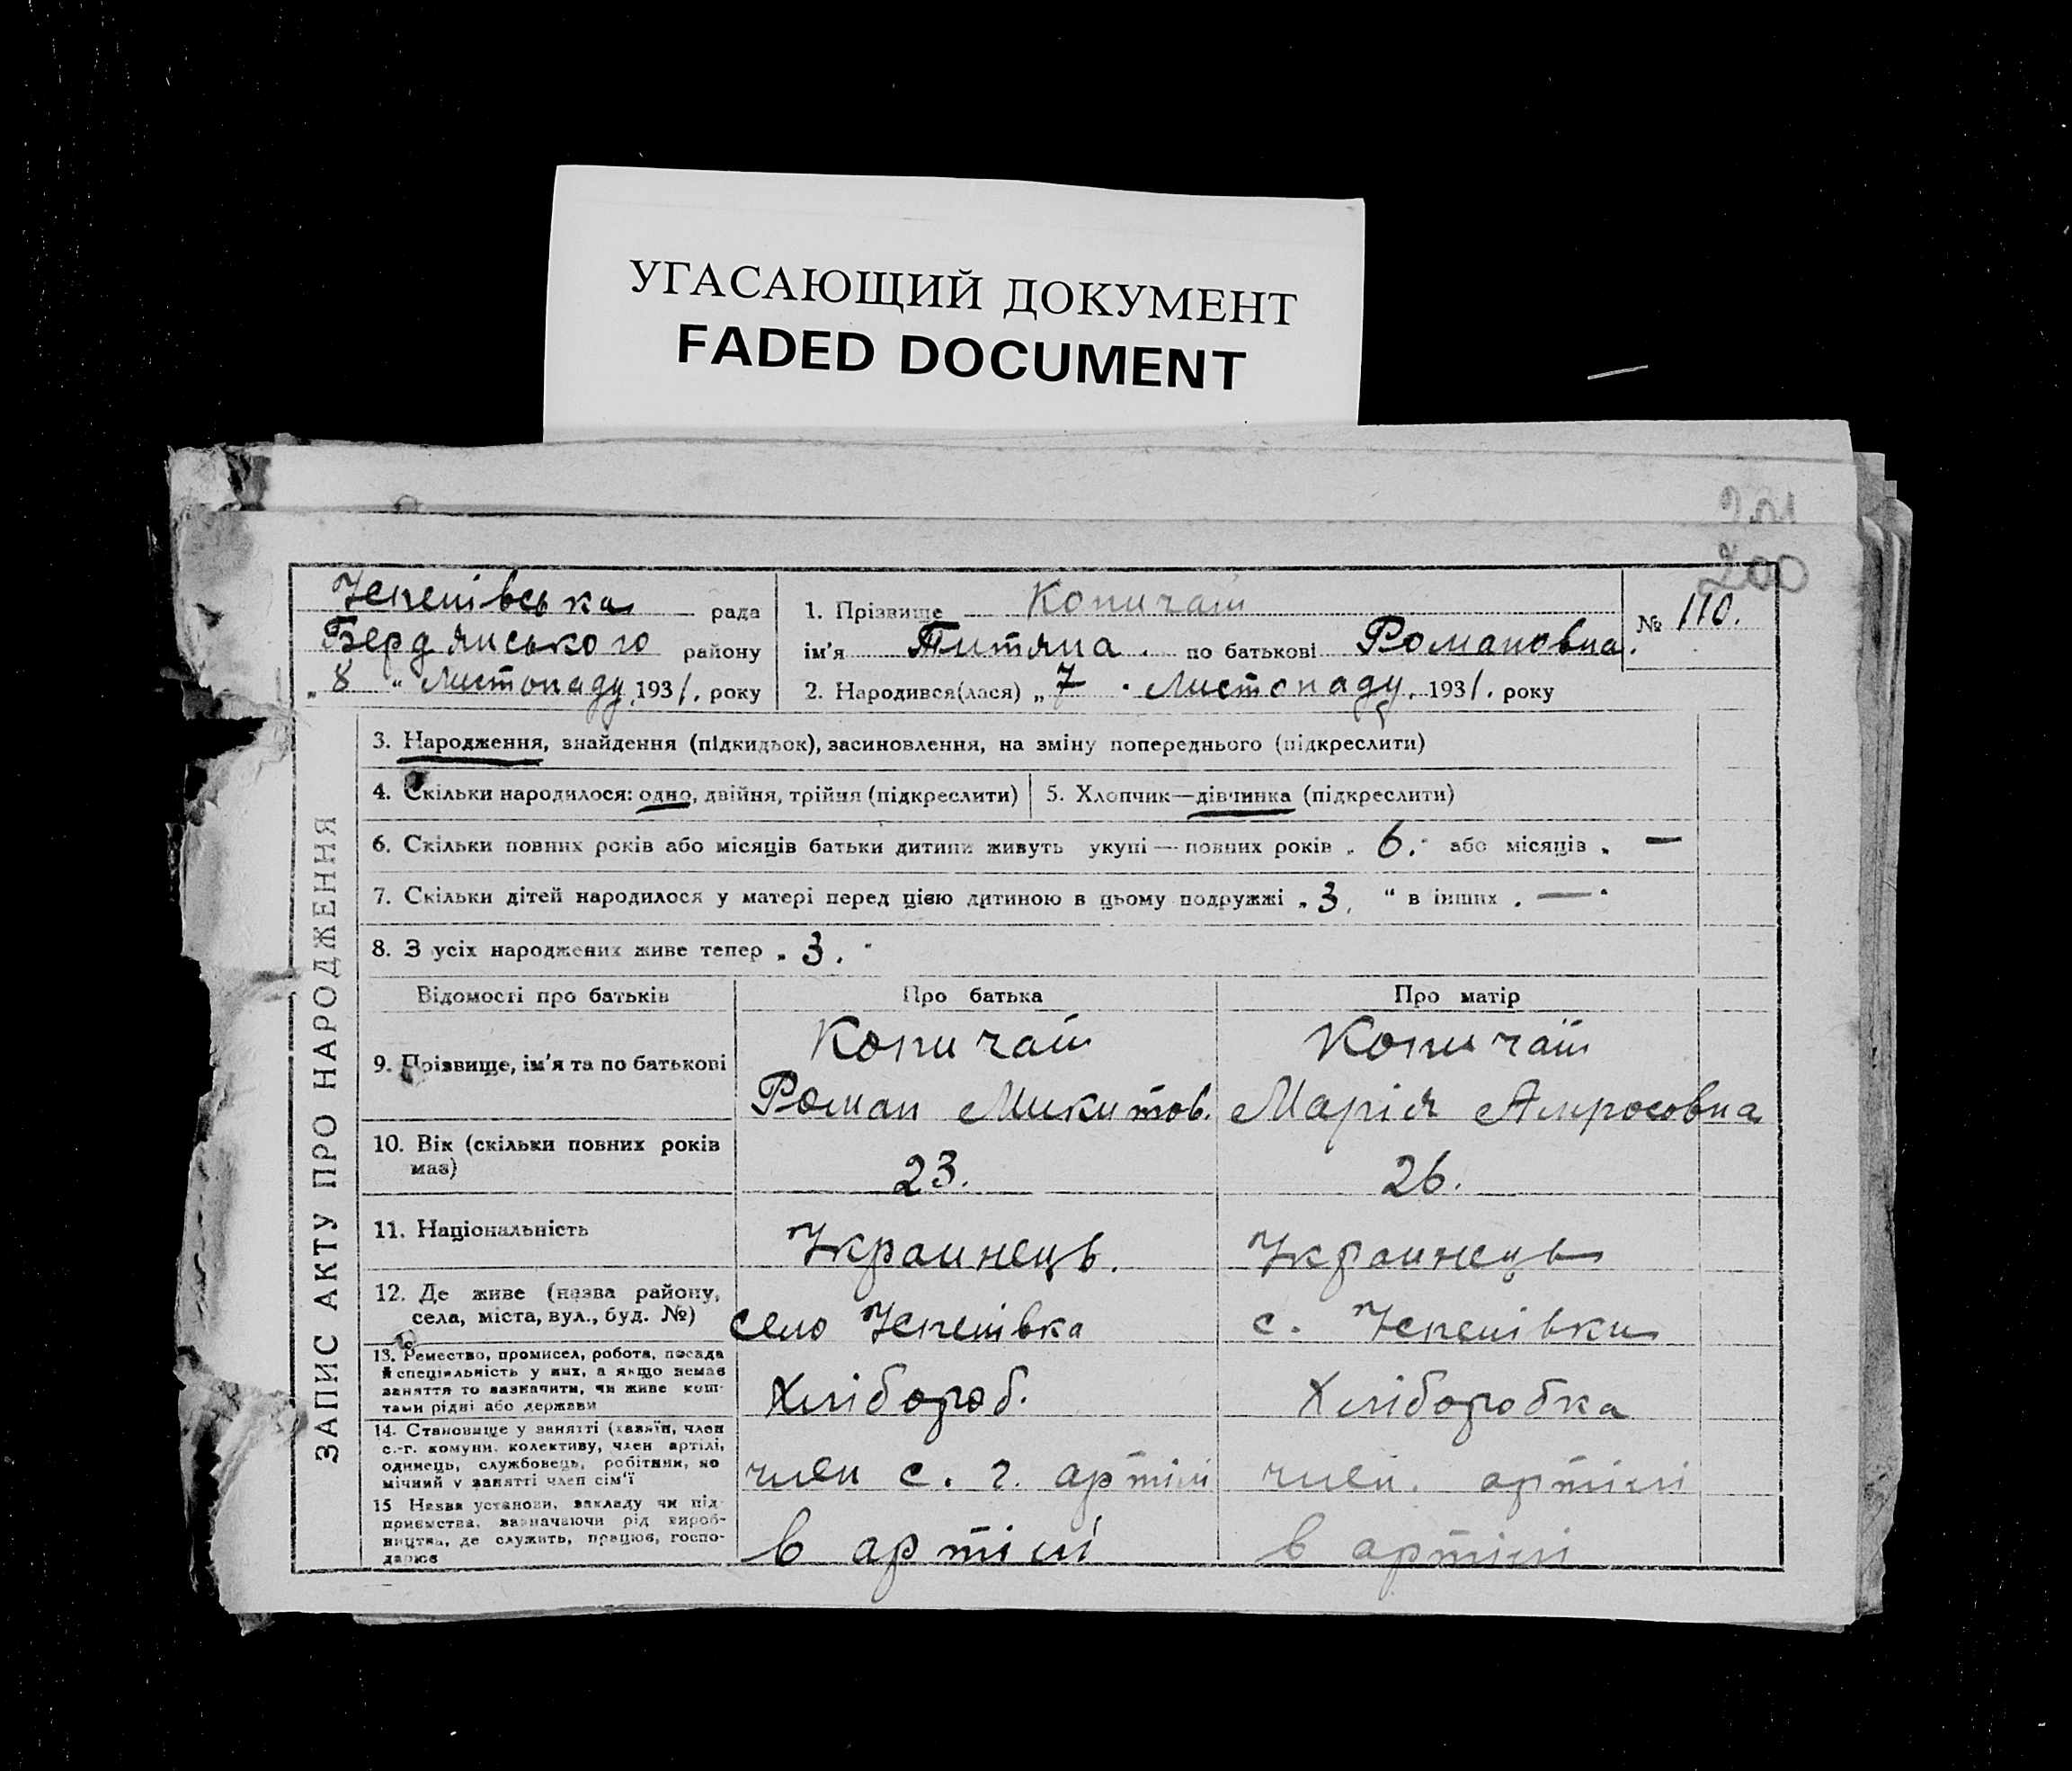 УГАСАЮЩИЙ ДОКУМЕНТ
FADED DOCUMENT
201
200
ЗАПИС АКТУ ПРО НАРОДЖЕННЯ
Успенівська рада
Бердянського району
„ 8 “ Листопаду 1931. року
1. Прізвище Копичаї
ім'я Титяна. по батькові Романовна.
№ 110.
2. Народився(лася) „ 7 " Листопаду. 1931. року
3. Народження, знайдення (підкидьок), засиновлення, на зміну попереднього (підкреслити)
4. Скільки народилося: одно, двійня, трійня (підкреслити)
5. Хлопчик—дівчинка (підкреслити)
6. Скільки повних років або місяців батьки дитини живуть укупі — повних років „ 6. " або місяців „ —
7. Скільки дітей народилося у матері перед цією дитиною в цьому подружжі „ 3. “ в інших „ — "
8. З усіх народжених живе тепер „ 3. "
Відомості про батьків Про батька Про матір
9. Прізвище, ім'я та по батькові
Копичаї
Роман Микитов.
Копичаї
Марія Амросовна
10. Вік (скільки повних років
має)
23.
26.
11. Національність
Украинець.
Украинець
12. Де живе (назва району,
села, міста, вул., буд. №)
село Успенівка
с. Успенівки
13. Ремество, промисел, робота, посада
й спеціяльність у них, а якщо немає
заняття то зазначити, чи живе кош-
тами рідні або держави
Хлібороб.
Хліборобка
14. Становище у занятті (хазяїн, член
с.-г. комуни, колективу, член артілі,
одинець, службовець, робітник, по
мічний у занятті член сім'ї
член с. г. артілі
член. артілі
15 Назва установи, закладу чи під
приємства, зазначаючи рід вироб-
ництва, де служить, працює, госпо-
дарює
в артілі
в артілі